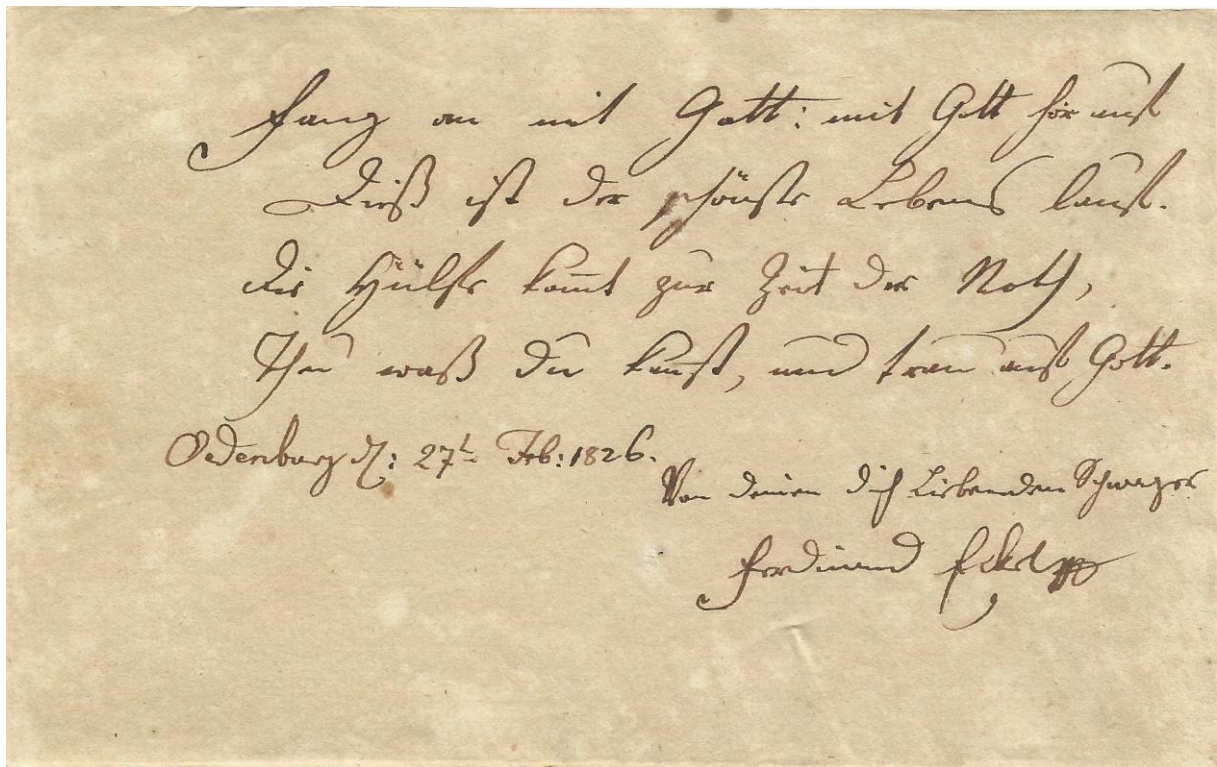 Fang an mit Gott: mit Gott hör auf
Dieß ist der schönste Lebens lauf.
die Hülfe kom̅t zur Zeit der Noth,
Thu waß du kan̅st, und trau auf Gott.
Oedenburg d: 27t Feb: 1826.
Von deinen dich Liebenden Schwager
Ferdinand Eckel